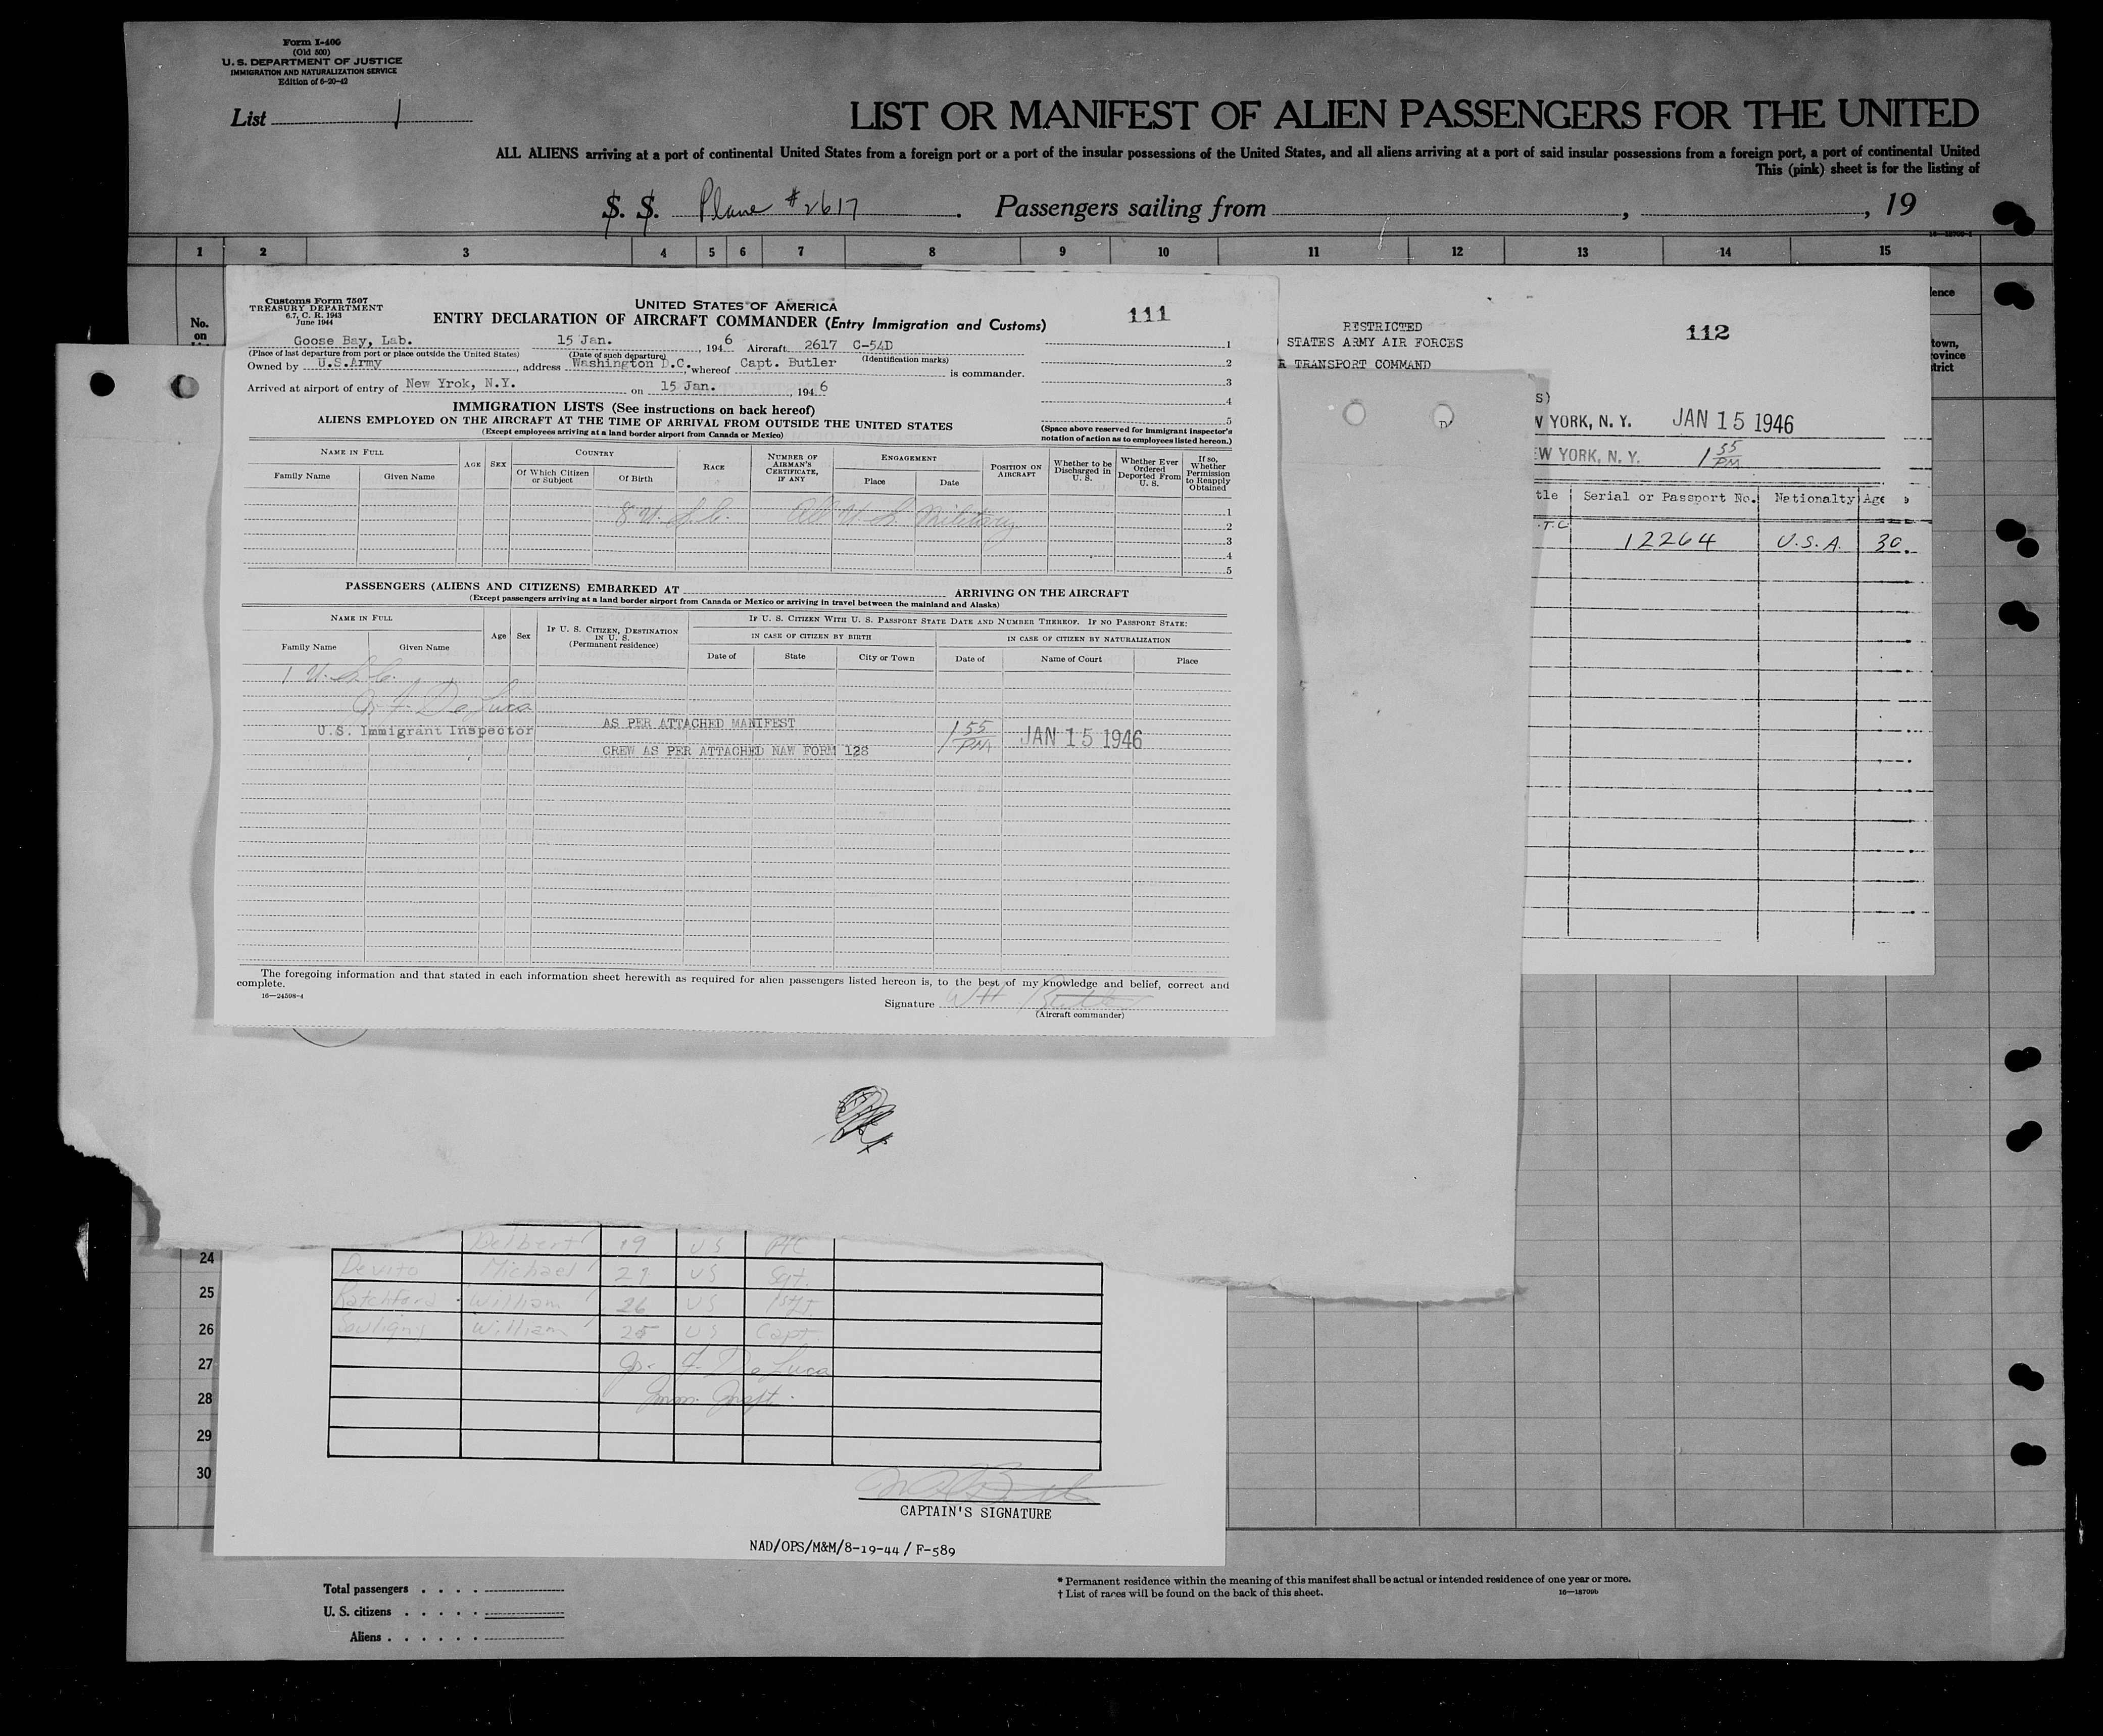 Form I-406
(Old 500)
U. S. DEPARTMENT OF JUSTICE
IMMIGRATION AND NATURALIZATION SERVICE
Edition of 6-20-42
List 1
LIST OR MANIFEST OF ALIEN PASSENGERS FOR THE UNITED
ALL ALIENS arriving at a port of continental United States from a foreign port or a port of the insular possessions of the United States, and all aliens arriving at a port of said insular possessions from a foreign port, a port of continental United
This (pink) sheet is for the listing of
S. S. Plane #2617. Passengers sailing from , , 19
1 2 3 4 5 6 7 8 9 10 11 12 13 14 15
No.
on
lence
town,
rovince
trict
Customs Form 7507
TREASURY DEPARTMENT
6.7, C. R. 1943
June 1944
UNITED STATES OF AMERICA
ENTRY DECLARATION OF AIRCRAFT COMMANDER (Entry Immigration and Customs)
111
Goose Bay, Lab. 15 Jan. , 1946 Aircraft 2617 C-54D
(Place of last departure from port or place outside the United States) (Date of such departure) (Identification marks)
Owned by U.S.Army , address Washington D.C. whereof Capt. Butler is commander.
Arrived at airport of entry of New Yrok, N.Y. on 15 Jan. , 1946
1
2
3
4
5
(Space above reserved for immigrant inspector's
notation of action as to employees listed hereon.)
IMMIGRATION LISTS (See instructions on back hereof)
ALIENS EMPLOYED ON THE AIRCRAFT AT THE TIME OF ARRIVAL FROM OUTSIDE THE UNITED STATES
(Except employees arriving at a land border airport from Canada or Mexico)
NAME IN FULL
Family Name Given Name
AGE SEX
COUNTRY
Of Which Citizen or Subject Of Birth
RACE
NUMBER OF AIRMAN'S CERTIFICATE, IF ANY
ENGAGEMENT
Place Date
POSITION ON AIRCRAFT
Whether to be Discharged in U. S.
Whether Ever Ordered Deported From U. S.
If so, Whether Permission to Reapply Obtained
8 U.S.C. All U S Military
1
2
3
4
5
PASSENGERS (ALIENS AND CITIZENS) EMBARKED AT ARRIVING ON THE AIRCRAFT
(Except passengers arriving at a land border airport from Canada or Mexico or arriving in travel between the mainland and Alaska)
NAME IN FULL
Family Name Given Name
Age Sex
IF U. S. CITIZEN, DESTINATION IN U. S.
(Permanent residence)
IF U. S. CITIZEN WITH U. S. PASSPORT STATE DATE AND NUMBER THEREOF. IF NO PASSPORT STATE:
IN CASE OF CITIZEN BY BIRTH IN CASE OF CITIZEN BY NATURALIZATION
Date of State City or Town Date of Name of Court Place
1 U.S.C.
De Luca
U.S. Immigrant Inspector
AS PER ATTACHED MANIFEST
CREW AS PER ATTACHED NAW FORM 128
1 55 PM JAN 15 1946
The foregoing information and that stated in each information sheet herewith as required for alien passengers listed hereon is, to the best of my knowledge and belief, correct and
complete.
16—24598-4
Signature WH Butler
(Aircraft commander)
RESTRICTED
STATES ARMY AIR FORCES
R TRANSPORT COMMAND
112
S)
W YORK, N. Y. JAN 15 1946
EW YORK, N. Y. 1 55 PM
tle Serial or Passport No. Nationalty Age
.T.C 12264 U.S.A. 30.
Delbert 19 US Pfc
Devito Michael 21 US Sgt.
Ratchford William 26 US 1st Lt.
Souligny William 25 US Capt.
De Luca
Imm. Inspt.
24
25
26
27
28
29
30
CAPTAIN'S SIGNATURE
NAD/OPS/M&M/8-19-44 / F-589
Total passengers
U. S. citizens
Aliens
* Permanent residence within the meaning of this manifest shall be actual or intended residence of one year or more.
† List of races will be found on the back of this sheet.
16—18709b